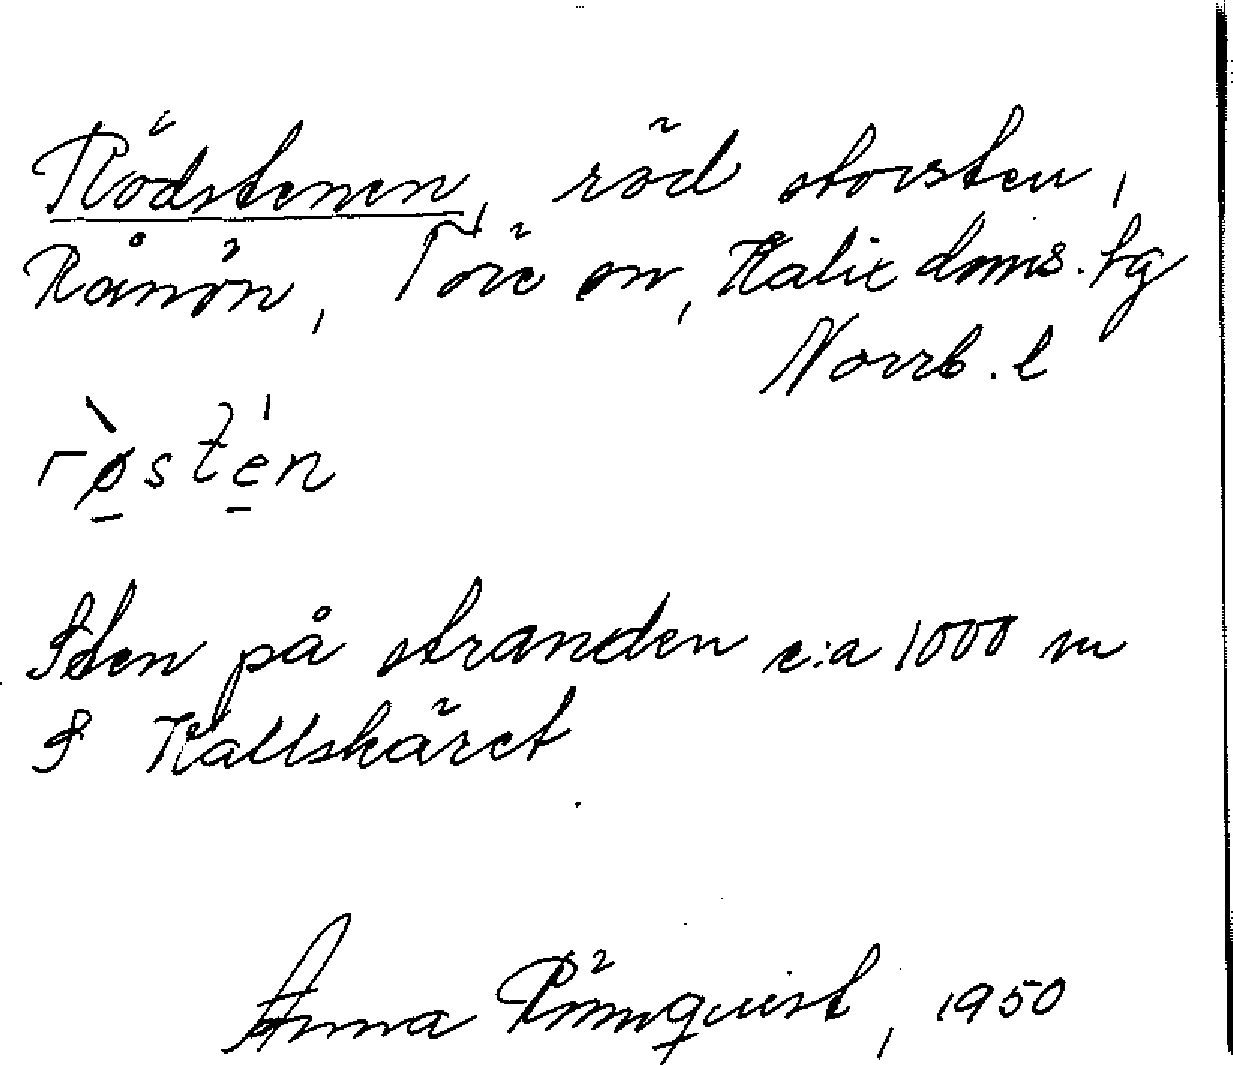 Rödstenen, röd storsten,
Rånön, Töre sn, Kalix doms. tg
Norrb. l
rø̀stén
Sten på stranden c:a 1000 m
S Hallskäret
Anna Rönnquist, 1950